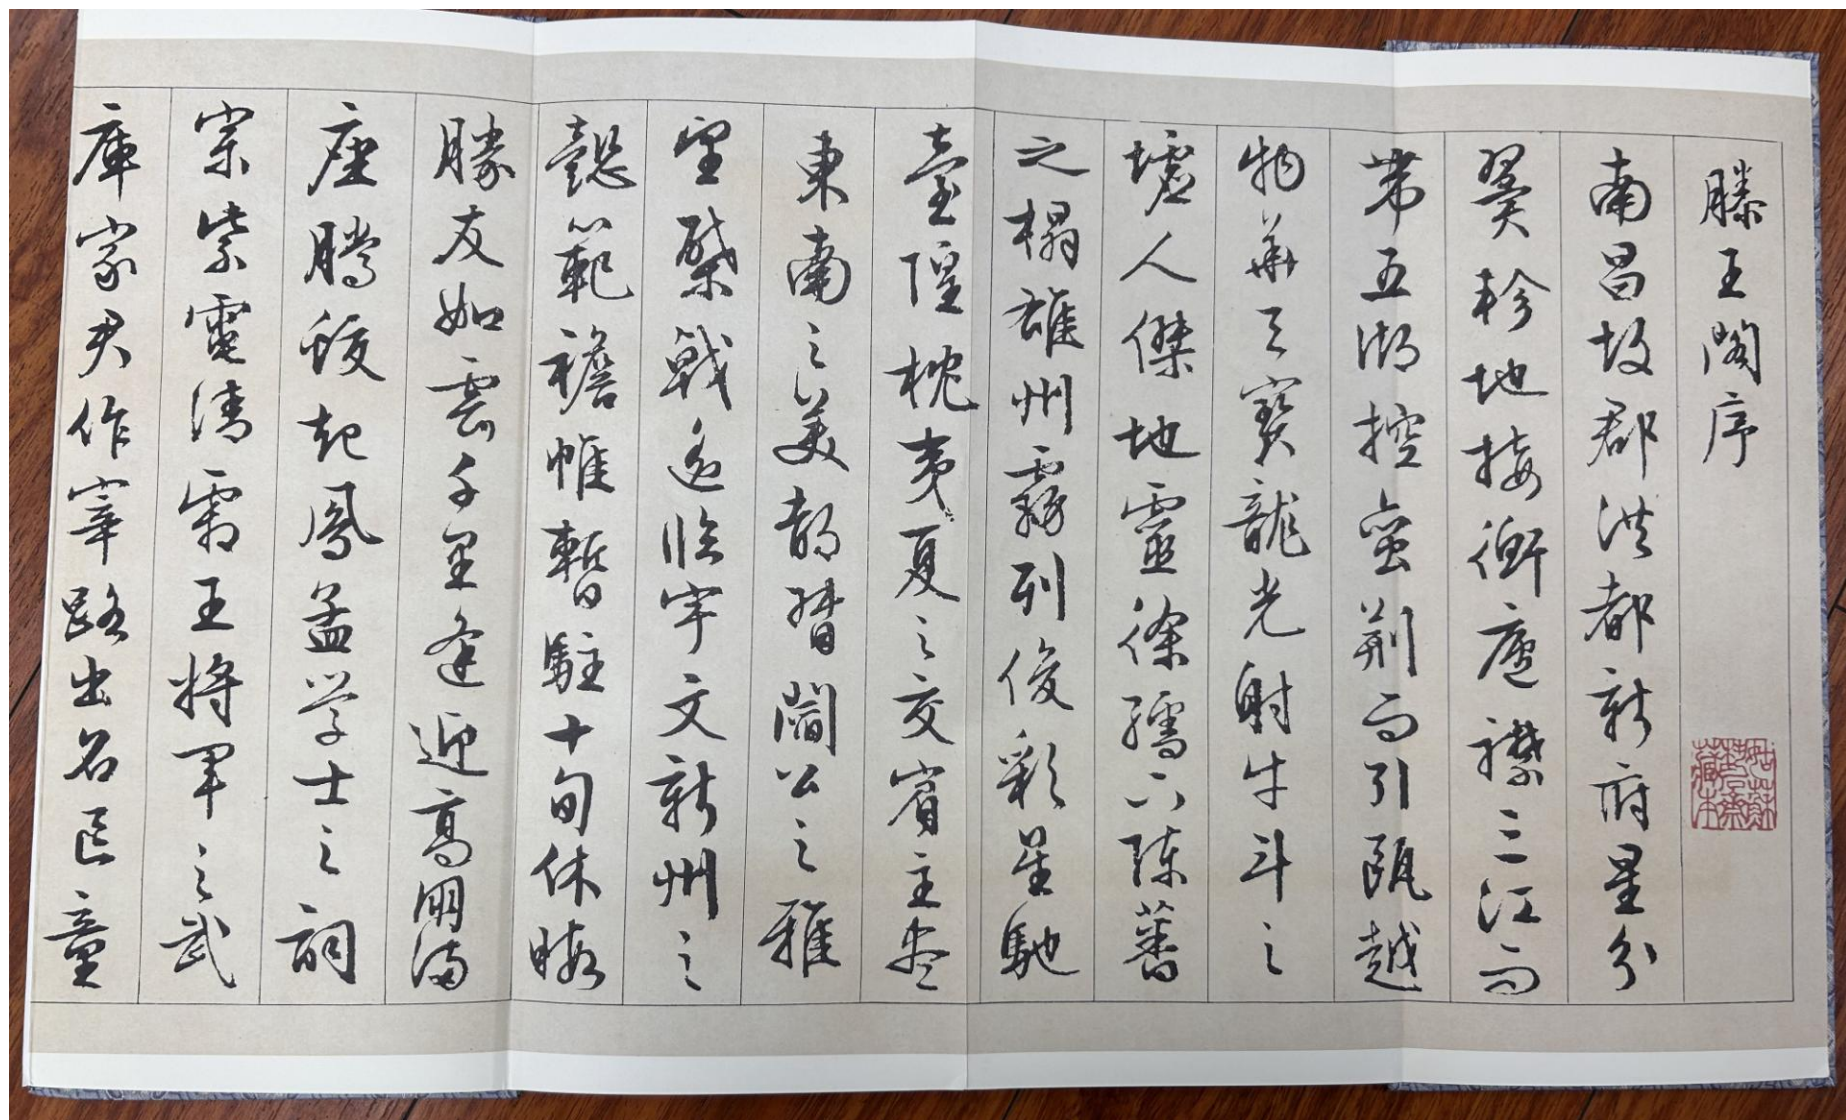 滕王閣序
南昌故郡洪都新府星分
翼軫地接衡廬襟三江而
帶五湖控蠻荊而引甌越
物華天寶龍光射牛斗之
墟人傑地靈徐孺下陳蕃
之榻雄州霧列俊彩星馳
臺隍枕夷夏之交賓主盡
東南之美都督閻公之雅
望棨戟遙臨宇文新州之
懿範襜帷暫駐十旬休暇
勝友如雲千里逢迎高朋滿
座騰蛟起鳳孟學士之詞
宗紫電清霜王將軍之武
庫家君作宰路出名區童